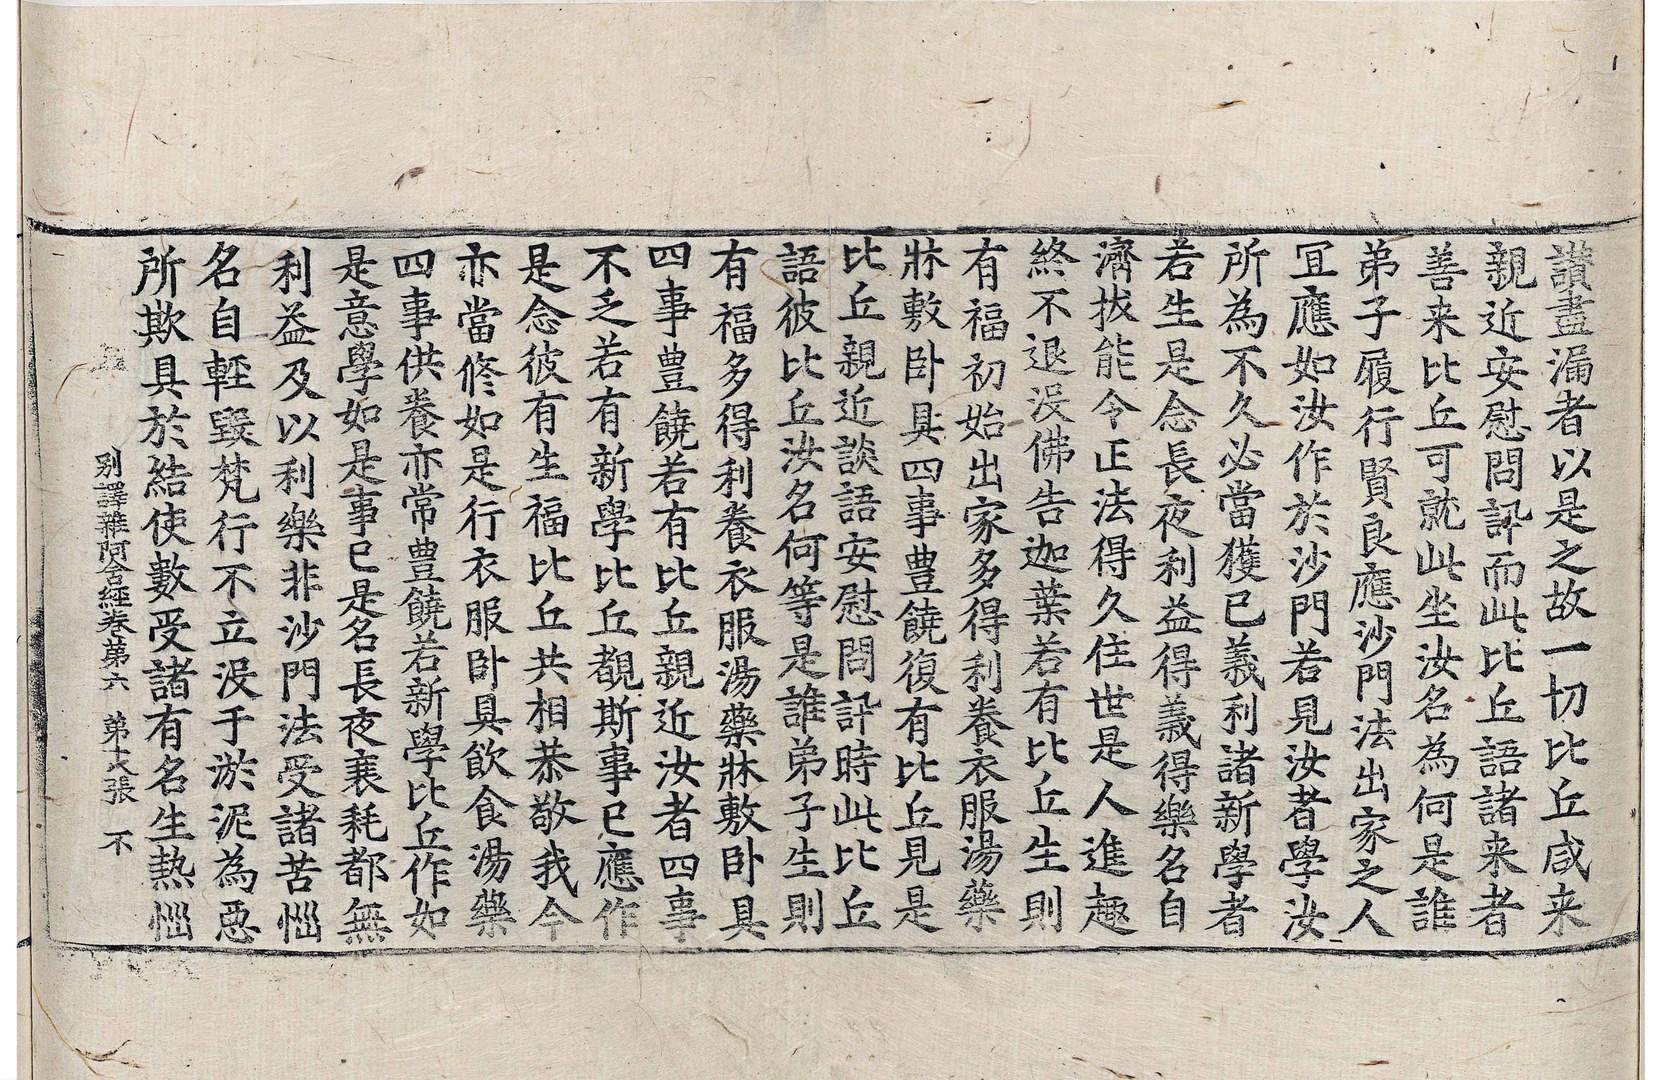 讃盡漏者以是之故一切比丘咸来
親近安慰問訊而此比丘語諸来者
善来比丘可就此坐汝名為何是誰
弟子履行賢良應沙門法出家之人
冝應如汝作於沙門若見汝者學汝
所為不久必當獲已義利諸新學者
若生是念長夜利益得義得樂名自
濟拔能令正法得久住世是人進趣
終不退沒佛告迦葉若有比丘生則
有福初始出家多得利養衣服湯藥
牀敷卧具四事豊饒復有比丘見是
比丘親近談語安慰問訊時此比丘
語彼比丘汝名何等是誰弟子生則
有福多得利養衣服湯藥牀敷卧具
四事豊饒若有比丘親近汝者四事
不乏若有新學比丘覩斯事已應作
是念彼有生福比丘共相恭敬我今
亦當修如是行衣服卧具飲食湯藥
四事供養亦常豊饒若新學比丘作如
是意學如是事已是名長夜衰耗都無
利益及以利樂非沙門法受諸苦惱
名自輕毀梵行不立沒于淤泥為惡
所欺具於結使數受諸有名生熱惱
别譯雜阿含經卷第六　第　張　不